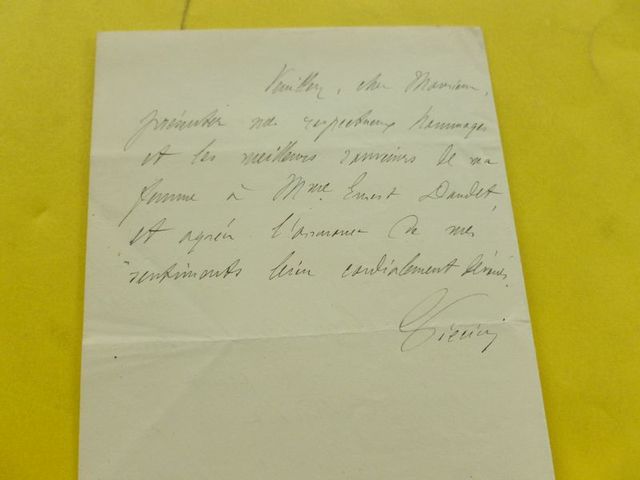 Veuillez, cher Monsieur,
présenter nos respectueux hommages
et les meilleurs souvenirs de ma
femme à Mme Ernest Daudet,
et agréer l'assurance de mes
sentiments bien cordialement dévoués.